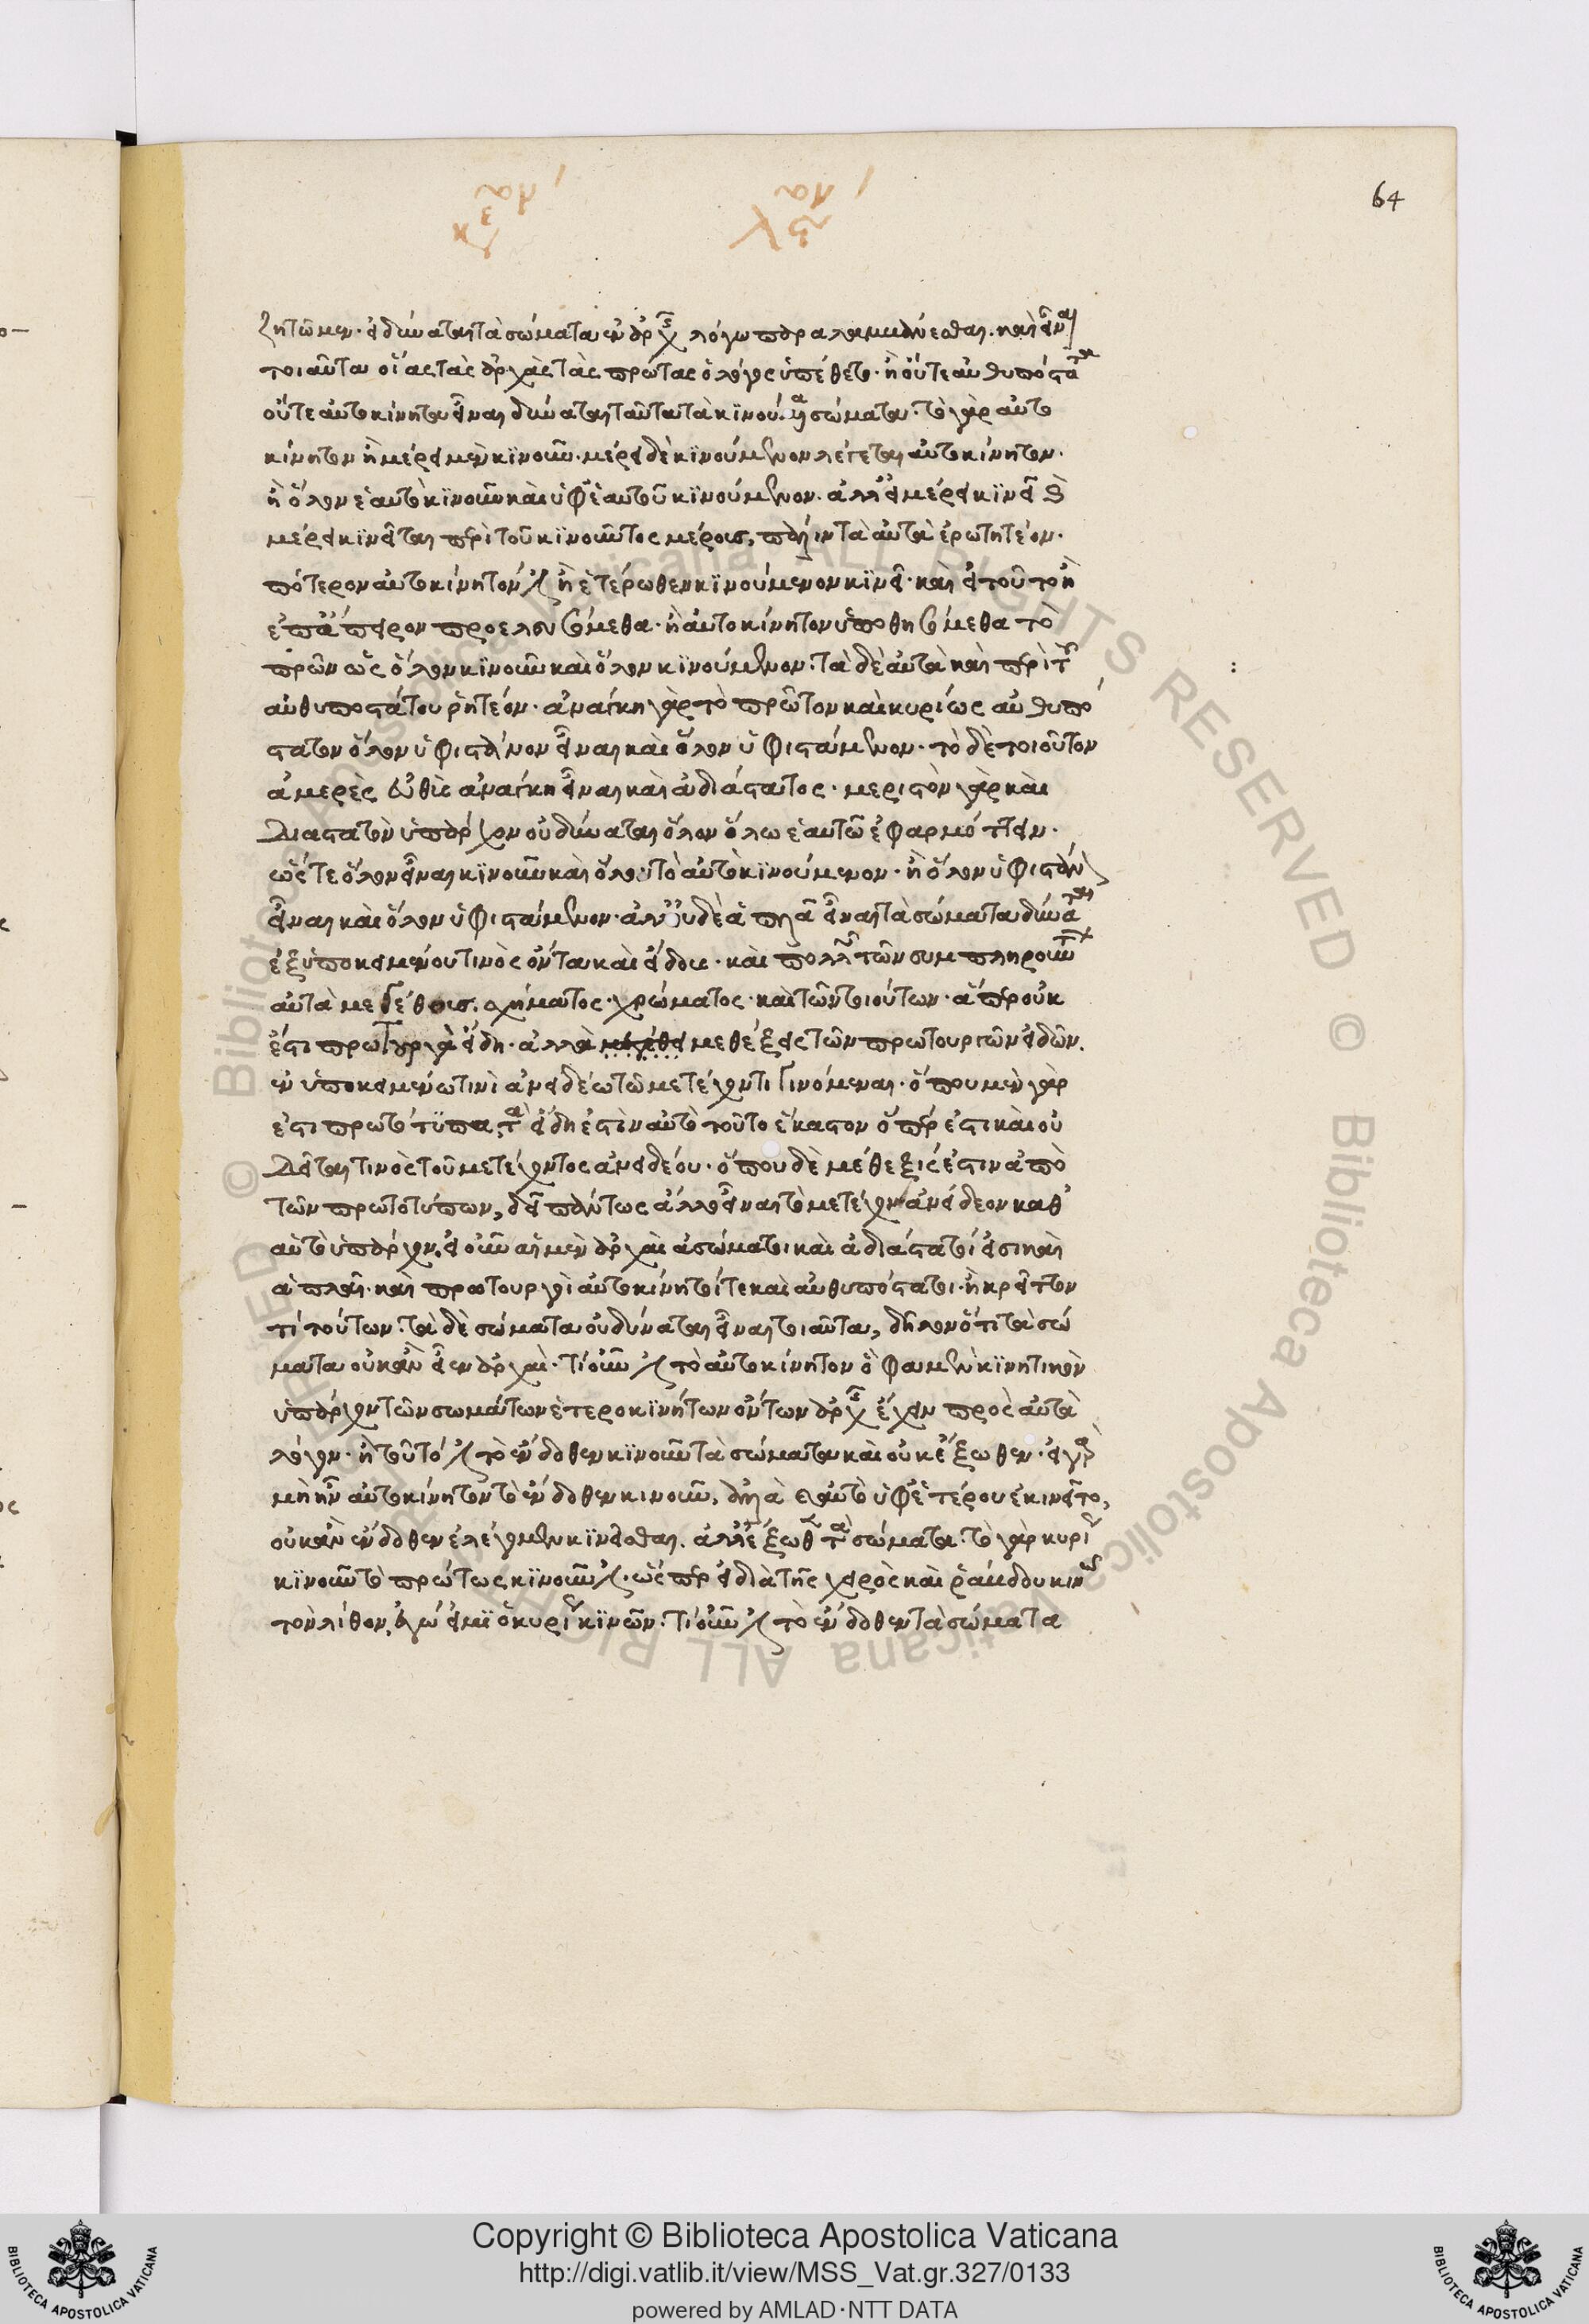 64
ζητῶμεν. εἰ δύναται τὰ σώματα ἐν ἀρχῆς λόγω παραλαμβάνεσθαι. καὶ εἶναι
τοιαῦτα οἵας τὰς ἀρχὰς τὰς πρώτας ὁ λόγος ὑπέθετο. ἢ οὔτε αὐθυπόστατα
οὔτε αὐτοκίνητα εἶναι δύναται ταῦτα τὰ κινούμενα σώματα. τὸ γὰρ αὐτο
κίνητον ἢ μέρει μὲν κινοῦν. μέρει δὲ κινούμενον λέγεται αὐτοκίνητον.
ἢ ὅλον ἑαυτὸ κινοῦν καὶ ὑφ' ἑαυτοῦ κινούμενον. ἀλλ' εἰ μέρει κινεῖ καὶ
μέρει κινεῖται περὶ τοῦ κινοῦντος μέρους, πάλιν τὰ αὐτὰ ἐρωτητέον.
πότερον αὐτοκίνητόν ἐστιν ἢ ἑτέρωθεν κινούμενον κινεῖ. καὶ εἰ τοῦτο ἢ
ἐπ' ἄπειρον προελευσόμεθα. ἢ αὐτοκίνητον ὑποθησόμεθα τὸ
πρῶτον ὡς ὅλον κινοῦν καὶ ὅλον κινούμενον. τὰ δὲ αὐτὰ καὶ περὶ τοῦ
αὐθυποστάτου ῥητέον. ἀνάγκη γὰρ τὸ πρῶτον καὶ κυρίως αὐθυπό
στατον ὅλον ὑφιστάνον εἶναι καὶ ὅλον ὑφιστάμενον. τὸ δὲ τοιοῦτον
ἀμερὲς εὐθὺς ἀνάγκη εἶναι καὶ ἀδιάστατος. μεριστὸν γὰρ καὶ
διαστατὸν ὑπάρχον οὐ δύναται ὅλον ὅλω ἑαυτῶ ἐφαρμόττειν.
ὥστε ὅλον εἶναι κινοῦν καὶ ὅλον τὸ αὐτὸ κινούμενον. ἢ ὅλον ὑφιστάν
εἶναι καὶ ὅλον ὑφιστάμενον. ἀλλ' οὐδὲ ἁπλᾶ εἶναι τὰ σώματα δύναται
ἐξ ὑποκειμένου τινὸς ὄντα καὶ εἴδους. καὶ πολλῶν τῶν συμπληρούντων
αὐτὰ μεγέθους. σχήματος. χρώματος. καὶ τῶν τοιούτων. ἅπερ οὐκ
ἔστι πρωτουργὰ εἴδη. ἀλλὰ μεθέξεις τῶν πρωτουργῶν εἰδῶν.
ἐν ὑποκειμένω τινὶ ἀνειδέω τῶ μετέχοντι γινόμεναι. ὅπου μὲν γὰρ
ἐστι πρωτότυπα, τὰ εἴδη ἐστὶν αὐτὸ τοῦτο ἕκαστον ὅπερ ἐστὶ καὶ οὐ
δεῖται τινὸς τοῦ μετέχοντος ἀνειδέου. ὅπου δὲ μέθεξις ἐστιν ἀπὸ
τῶν πρωτοτύπων, δεῖ πάντως ἄλλο εἶναι τὸ μετέχον ἀνείδεον καθ'
αὑτὸ ὑπάρχον. εἰ οὖν αἱ μὲν ἀρχαὶ ἀσώματοι καὶ ἀδιάστατοί εἰσι καὶ
ἁπλαῖ. καὶ πρωτουργοὶ αὐτοκίνητοί τε καὶ αὐθυπόστατοι. ἢ κρεῖττον
τί τούτων. τὰ δὲ σώματα οὐ δύναται εἶναι τοιαῦτα, δῆλον ὅτι τὰ σώ
ματα οὐκ ἂν εἶεν ἀρχαὶ. τί οὖν ἐστι τὸ αὐτοκίνητον ὃ φαμὲν κινητικὸν
ὑπάρχον τῶν σωμάτων ἑτεροκινήτων ὄντων ἀρχῆς ἔχειν πρὸς αὐτὰ
λόγον. ἢ τοῦτό ἐστι τὸ ἔνδοθεν κινοῦν τὰ σώματα καὶ οὐκ ἔξωθεν. εἰ γὰρ
μὴ ἦν αὐτοκίνητον τὸ ἔνδοθεν κινοῦν, ἀλλὰ αὐτὸ ὑφ' ἑτέρου ἐκινεῖτο,
οὐκ ἂν ἔνδοθεν ἐλέγομεν κινεῖσθαι. ἀλλ' ἔξωθεν τὰ σώματα. τὸ γὰρ κυρίως
κινοῦν τὸ πρώτως κινοῦν ἐστιν. ὥσπερ εἰ διὰ τῆς χειρὸς καὶ ῥάβδου κινῶ
τὸν λίθον, ἐγώ εἰμι ὁ κυρίως κινῶν. τί οὖν ἐστι τὸ ἔνδοθεν τὰ σώματα
Copyright © Biblioteca Apostolica Vaticana
http://digi.vatlib.it/view/MSS_Vat.gr.327/0133
powered by AMLAD·NTT DATA